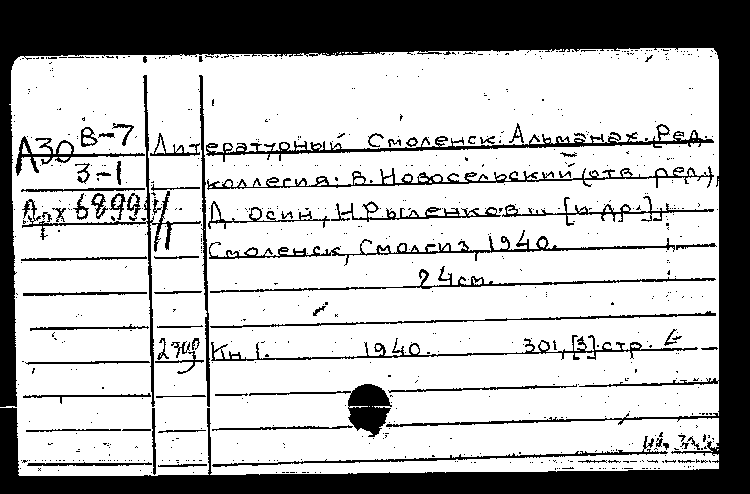 А30 В-7
3-1
Арх 68999/
Литературный Смоленск. Альманах. Ред.
коллегия: В. Новосельский (отв. ред.),
Д. Осин, Н Рыленков... [и др.].
Смоленск, Смолгиз, 1940.
24см.
Кн. 1. 1940. 301, [3] стр.